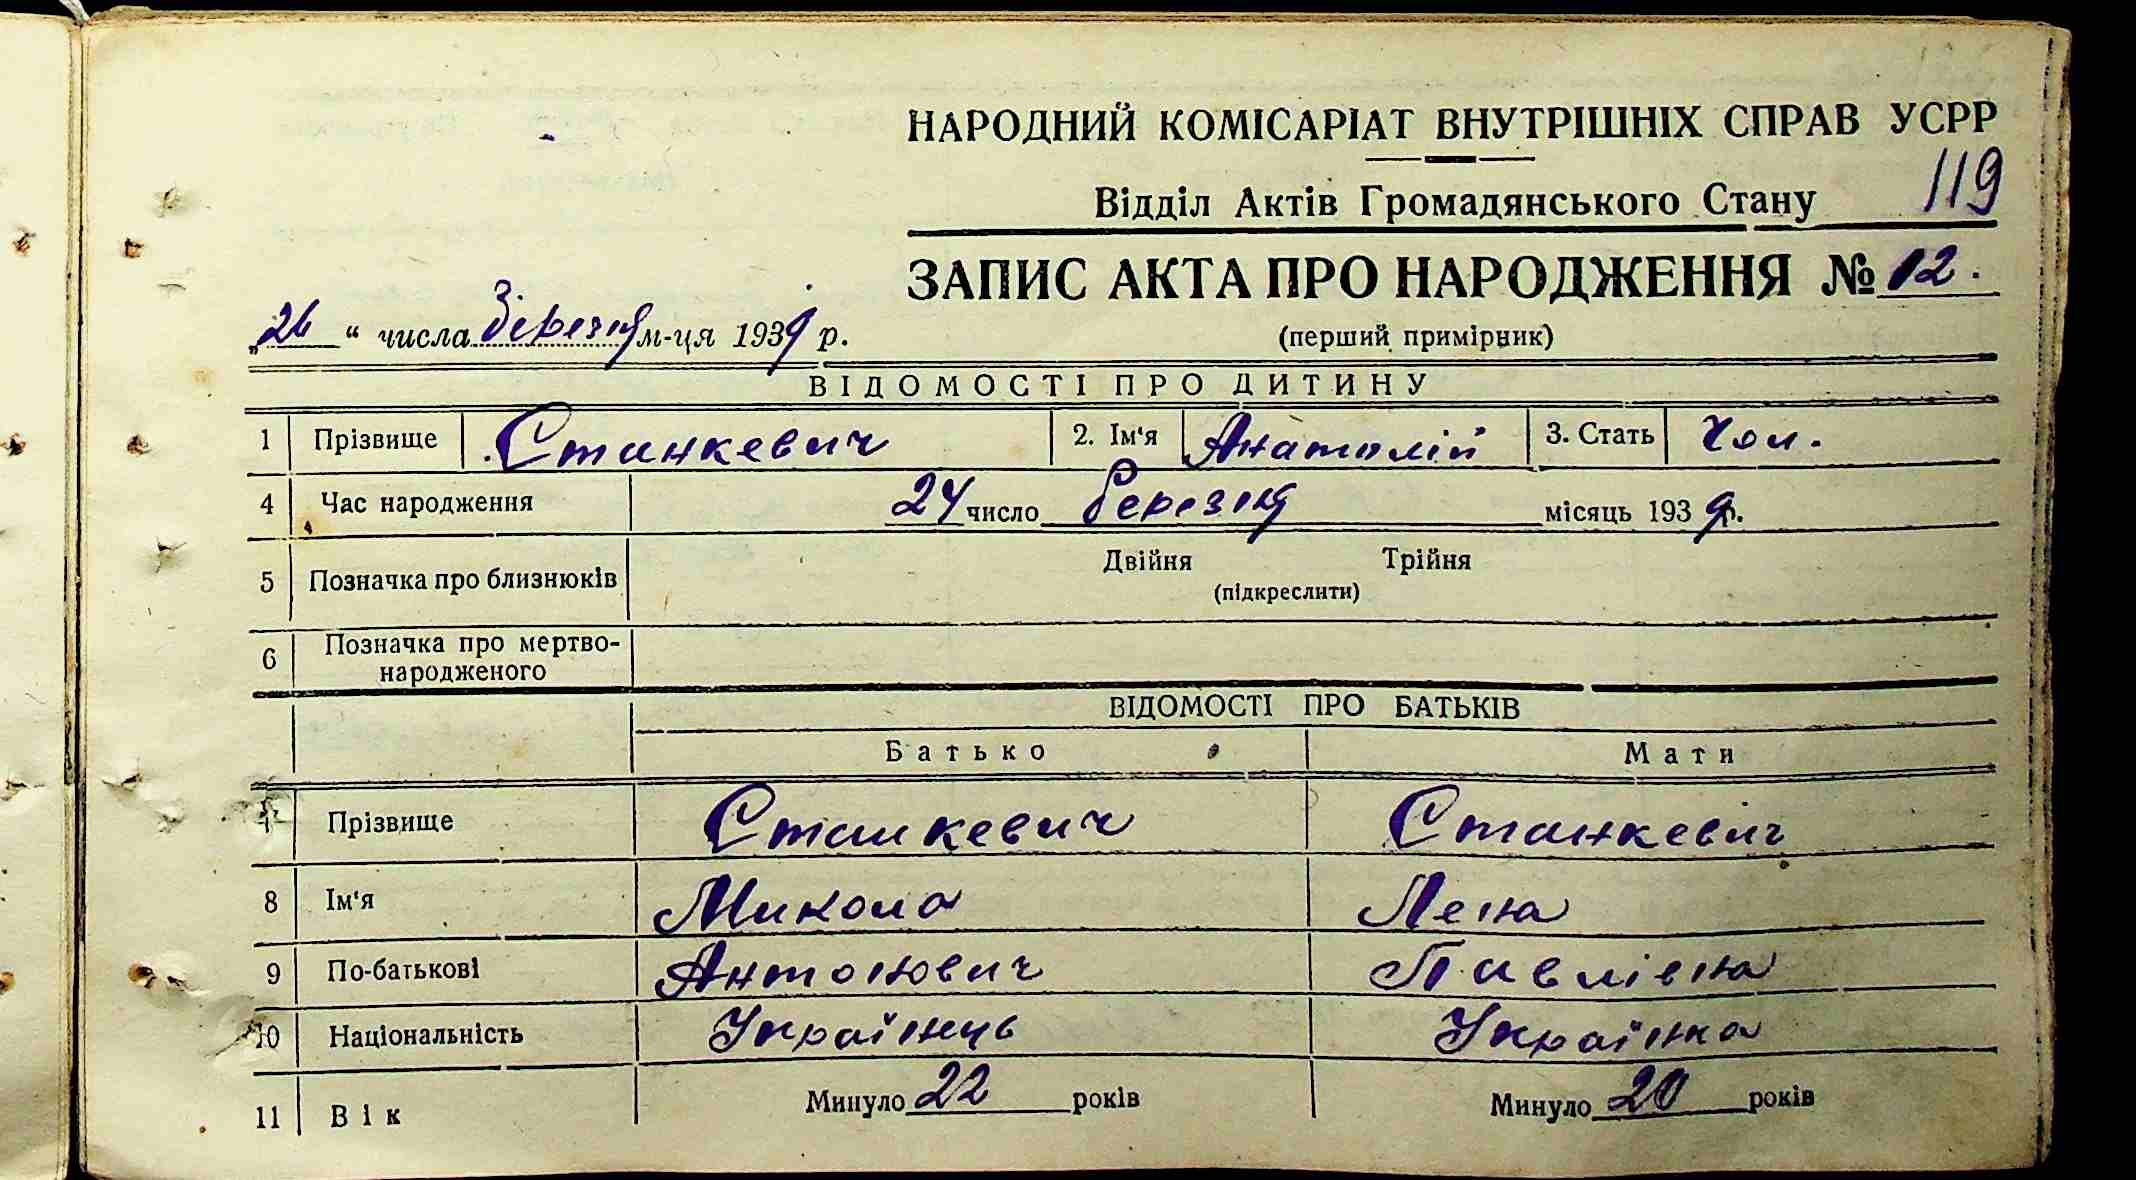 НАРОДНИЙ КОМІСАРІАТ ВНУТРІШНІХ СПРАВ УСРР
119
Відділ Актів Громадянського Стану
ЗАПИС АКТА ПРО НАРОДЖЕННЯ № 12.
„26“ числа березня м-ця 1939 р.
(перший примірник)
ВІДОМОСТІ ПРО ДИТИНУ
1 Прізвище Станкевич 2. Ім'я Анатолій 3. Стать Чол.
4 Час народження 24 число березня місяць 1939 р.
5 Позначка про близнюків Двійня Трійня
(підкреслити)
6 Позначка про мертво-
народженого
ВІДОМОСТІ ПРО БАТЬКІВ
Батько Мати
7 Прізвище Станкевич Станкевич
8 Ім'я Микола Лена
9 По-батькові Антонович Павлівна
10 Національність Українець Українка
11 Вік Минуло 22 років Минуло 20 років